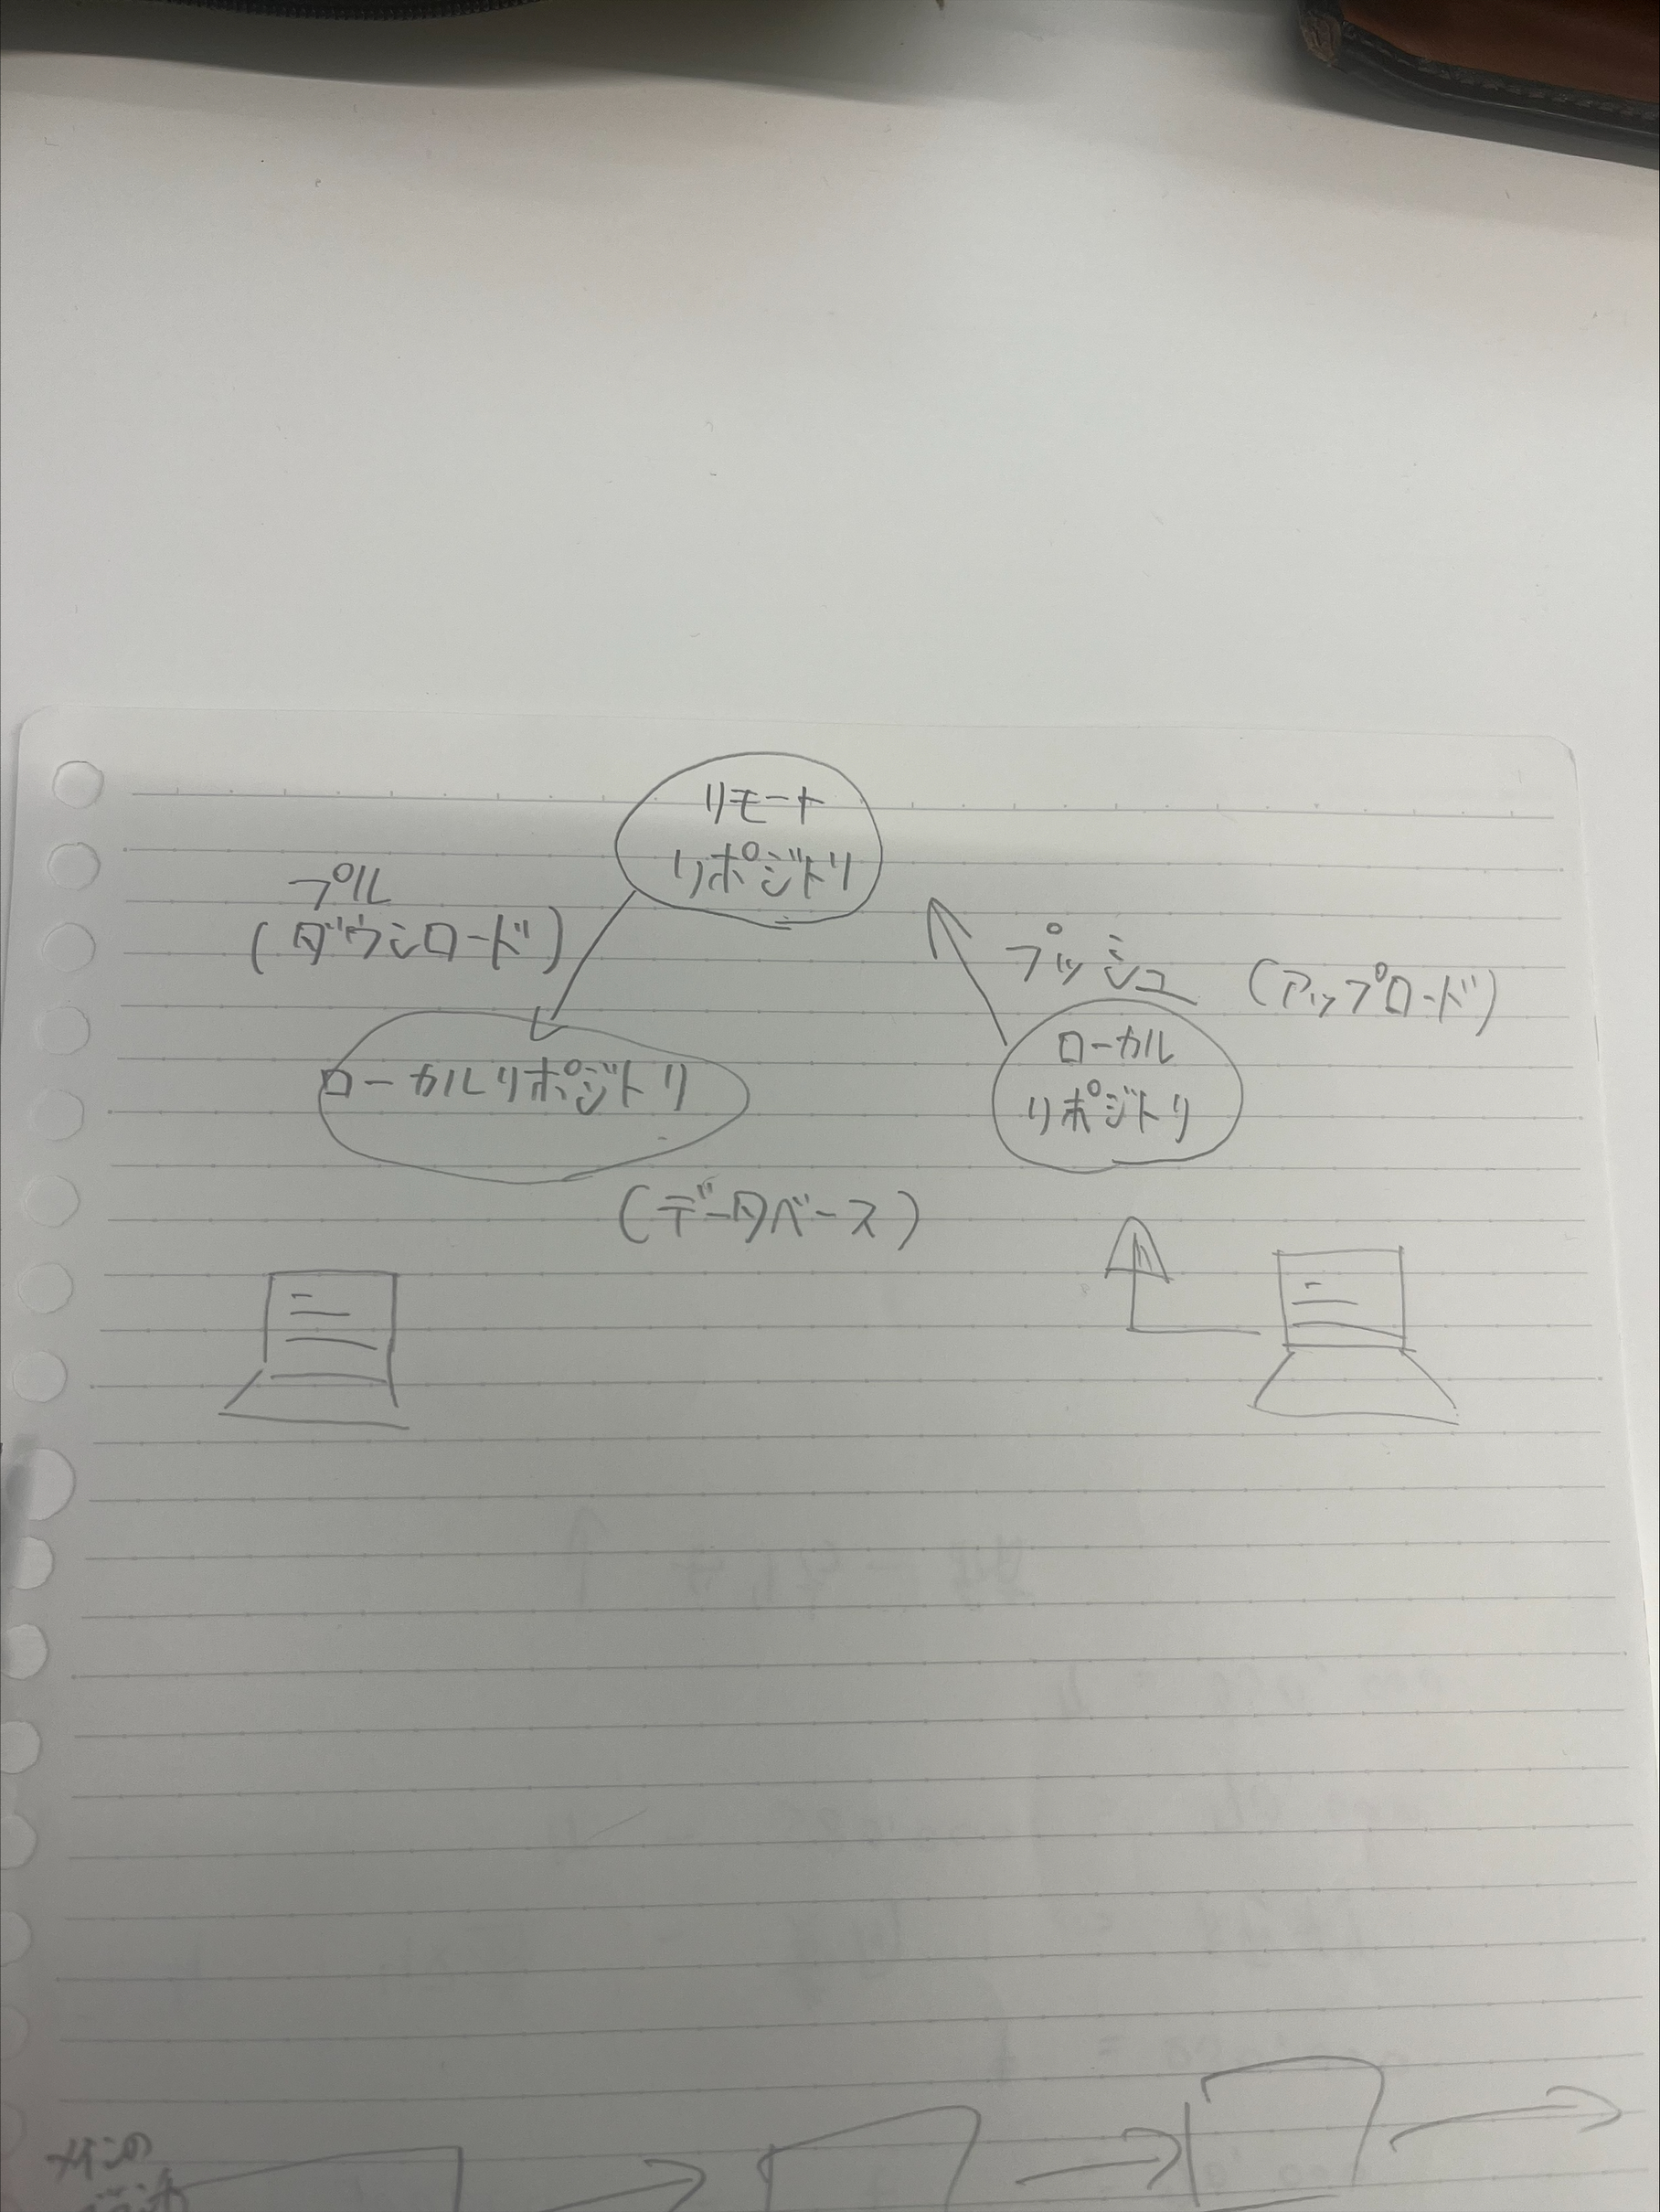 リモート
リポジトリ
プル
(ダウンロード)
プッシュ (アップロード)
ローカルリポジトリ
ローカル
リポジトリ
(データベース)
メインの